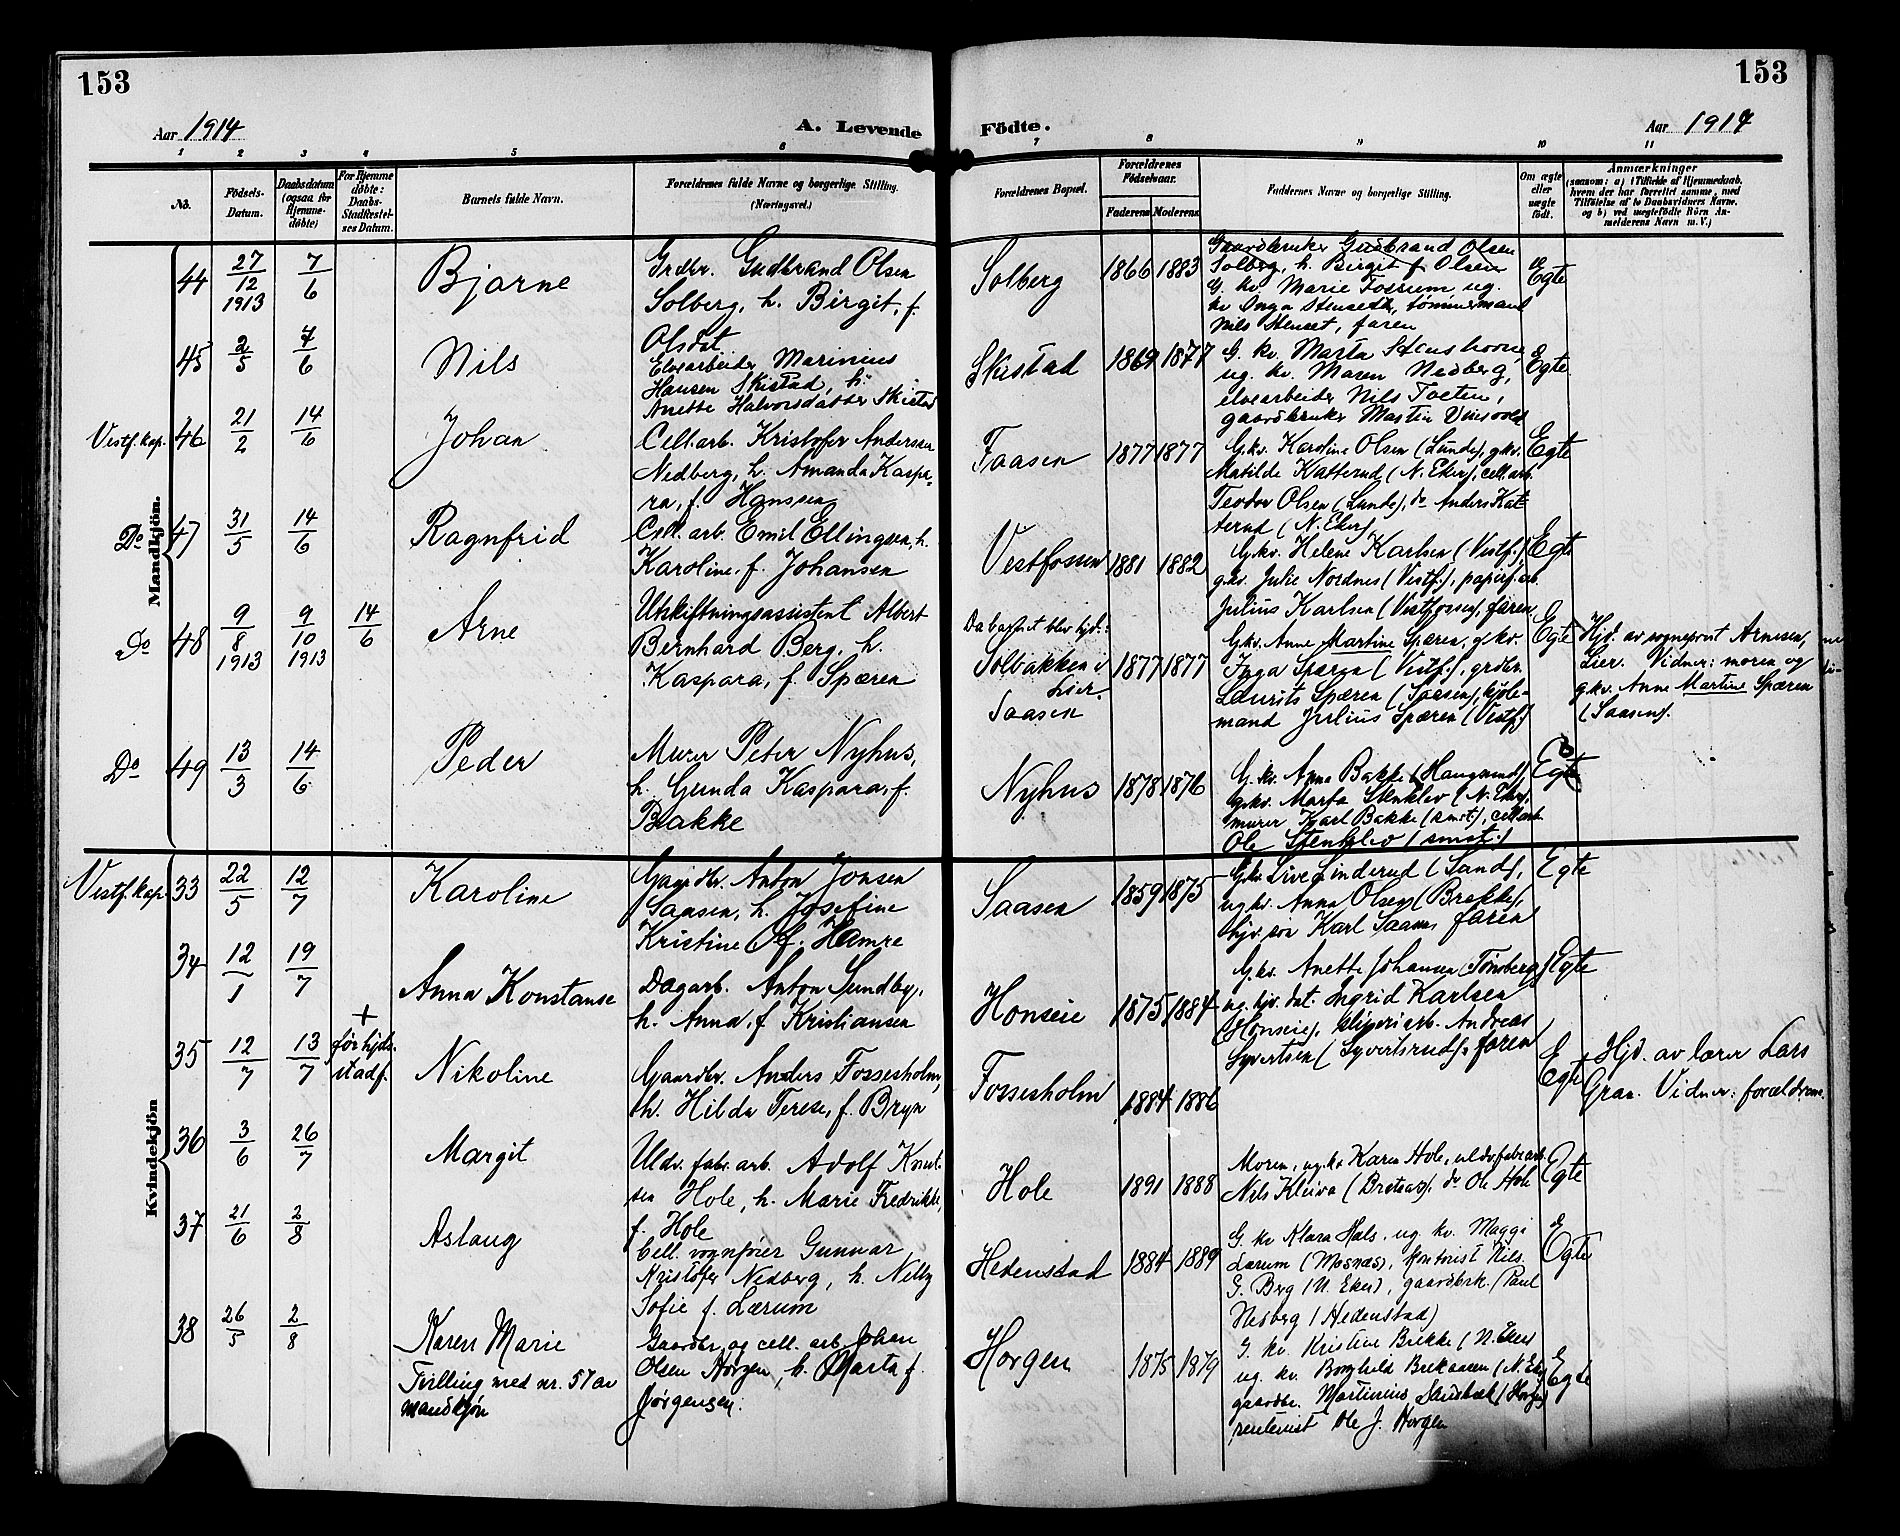 153
153
Aar 1914
A. Levende
Födte.
Aar 1914
1 2 3 4 5 6 7 8 9 10 11
No.
Födsels-
Datum.
Daabsdatum
(ogsaa for
Hjemme-
döbte)
For Hjemme
döbte:
Daabs-
Stadfæstel-
ses Datum.
Barnets fulde Navn.
Forældrenes fulde Navne og borgerlige Stilling.
(Næringsvei.)
Forældrenes Bopæl.
Forældrenes
Födselsaar.
Faderens Moderens
Faddernes Navne og borgerlige Stilling.
Om ægte
eller
uægte
födt.
Anmærkninger
(saasom: a) i Tilfælde af Hjemmedaab,
hvem der har forrettet samme, med
Tilföielse af to Daabsvidners Navne,
og b) ved uægtefödte Börn An-
melderens Navn m. V.)
Mandkjön.
44 27/12 1913 7/6
Bjarne
Grdbr. Gudbrand Olsen
Solberg, h. Birgit, f.
Olsdat
Solberg
1866 1883
Gaardbruker Gudbrand Olsen
Solberg, h. Birgit f Olsen
G. kv. Marie Fossum, ug.
kv Inga Stenseth, tømmermand
Nils Stenset, faren
Egte
45 2/5 7/6
Nils
Elvearbeider Marinius
Hansen Skistad, h.
Anette Halvorsdatter Skistad
Skistad
1869 1877
G. kv. Marta
ug. kv. Maren Nedberg,
elvearbeider Nils Toeten,
gaardbruker Martin
Egte
Vestf. kap. 46 21/2 14/6
Johan
Cell.arb. Kristofer Andersen
Nedberg, h. Amanda Kaspa-
ra, f. Hansen
Faasen
1877 1877
G.kv. Karoline Olsen (Lunde), g.kv.
Matilde Katterud (N. Eker), cell.arb.
Teodor Olsen (Lunde), do Anders Kat-
terud (N. Eker).
Egte
Do 47 31/5 14/6
Ragnfrid
Cell. arb. Emil Ellingsen, h.
Karoline, f. Johansen
Vestfossen
1881 1882
G.kv. Helene Karlsen (Vestf.)
g.kv. Julie Nordnes (Vestf.), papirf. arb.
Julius Karlsen (Vestfossen), faren
Egte
Do 48 9/8 1913 9/10 1913 14/6
Arne
Utskiftningsassistent Albert
Bernhard Berg, h.
Kaspara, f. Spæren
Da barnet blev hjd.:
Solbakken i
Lier.
Saasen
1877 1877
G.kv. Anne Martine Spæren, g.kv.
Inga Spæren (Vestf.), grdbr.
Laurits Spæren (Saasen), kjøle-
mand Julius Spæren (Vestf.)
Egte
Hjd. av sogneprest Arnesen,
Lier. Vidner: moren og
g.kv. Anne Martine Spæren
(Saasen).
Do 49 13/3 14/6
Peder
Murer Peter Nyhus,
h. Gunda Kaspara, f.
Bakke
Nyhus
1878 1876
G.kv. Anna Bakke (Haugsund),
g.kv. Marta Stenklev (N. Eker),
murer Karl Bakke (smst.), cell.arb.
Ole Stenklev (smst.)
Egte
Kvindekjön
Vestf. kap. 33 22/5 12/7
Karoline
Gaardbr. Anton Jonsen
Saasen, h. Josefine
Kristine O. f. Hamre
Saasen
1859 1875
G.kv. Live Linderud (Sand),
ug.kv. Anna Olsen (Brekke),
hjv. søn Karl Saasen, faren
Egte
34 12/1 19/7
Anna Konstanse
Dagarb. Anton Sundby,
h. Anna, f. Kristiansen
Honseie
1875 1884
G.kv. Anette Johansen (Tønsberg)
ug. hjv. dat. Ingrid Karlsen
(Honseie), sliperiarb. Andreas
Syvertsen (Syvertsrud), faren
Egte
35 12/7 13/7
+
før hjds.
stadf.
Nikoline
Gaardbr. Anders Fossesholm,
h. Hilda Terese, f. Bryn
Fossesholm
1884 1886
Egte
Hjd. av lærer Lars
Graa. Vidner: forældrene.
36 3/6 26/7
Margit
Uldv. fabr. arb. Adolf Knut-
sen Hole, h. Marie Fredrikke,
f. Hole
Hole
1891 1888
Moren, ug.kv Karen Hole, uldv.fabr.arb.
Nils Kleiva (Bretaas), do Ole Hole
Egte
37 21/6 2/8
Aslaug
Cell. vognfører Gunnar
Kristofer Nedberg, h. Nelly
Sofie f. Lærum
Hedenstad
1884 1889
G. kv Klara Hals, ug. kv. Maggi
Lærum (Mosnæs), kontorist Nils
G. Berg (N. Eker), gaardbrk. Paul
Nedberg (Hedenstad)
Egte
38 26/5 2/8
Karen Marie
Tvilling med nr. 57 av
mandkjøn
Gaardbr og cell. arb. Johan
Olsen Horgen, h. Marta f.
Jørgensen.
Horgen
1875 1879
G. kv. Kristine Brekke (N. Eker)
ug. kv. Borghild Brekaasen (N. Eker)
gaardbr. Martinius Landsbæk (Horgen)
rentenist Ole J. Horgen
Egte